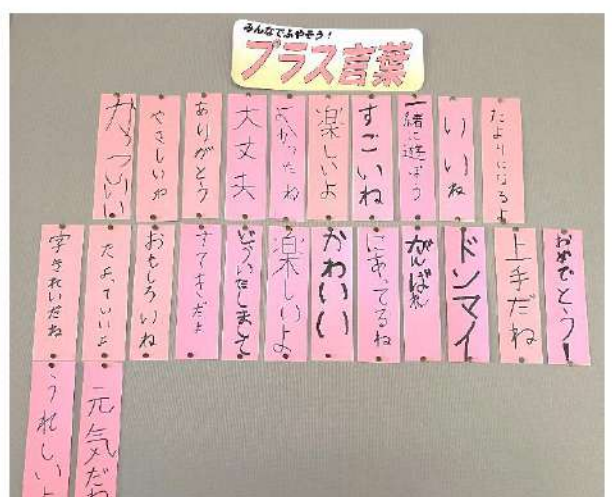 みんなでふやそう！
プラス言葉
かっこいい
やさしいね
ありがとう
大丈夫
よかったね
楽しいよ
すごいね
一緒に遊ぼう
いいね
たよりになるよ
字きれいだね
たよっていいよ
おもしろいね
すてきだよ
どういたしまして
楽しいよ
かわいい
にあってるね
がんばれ
ドンマイ
上手だね
おめでとう！
うれしいよ
元気だね